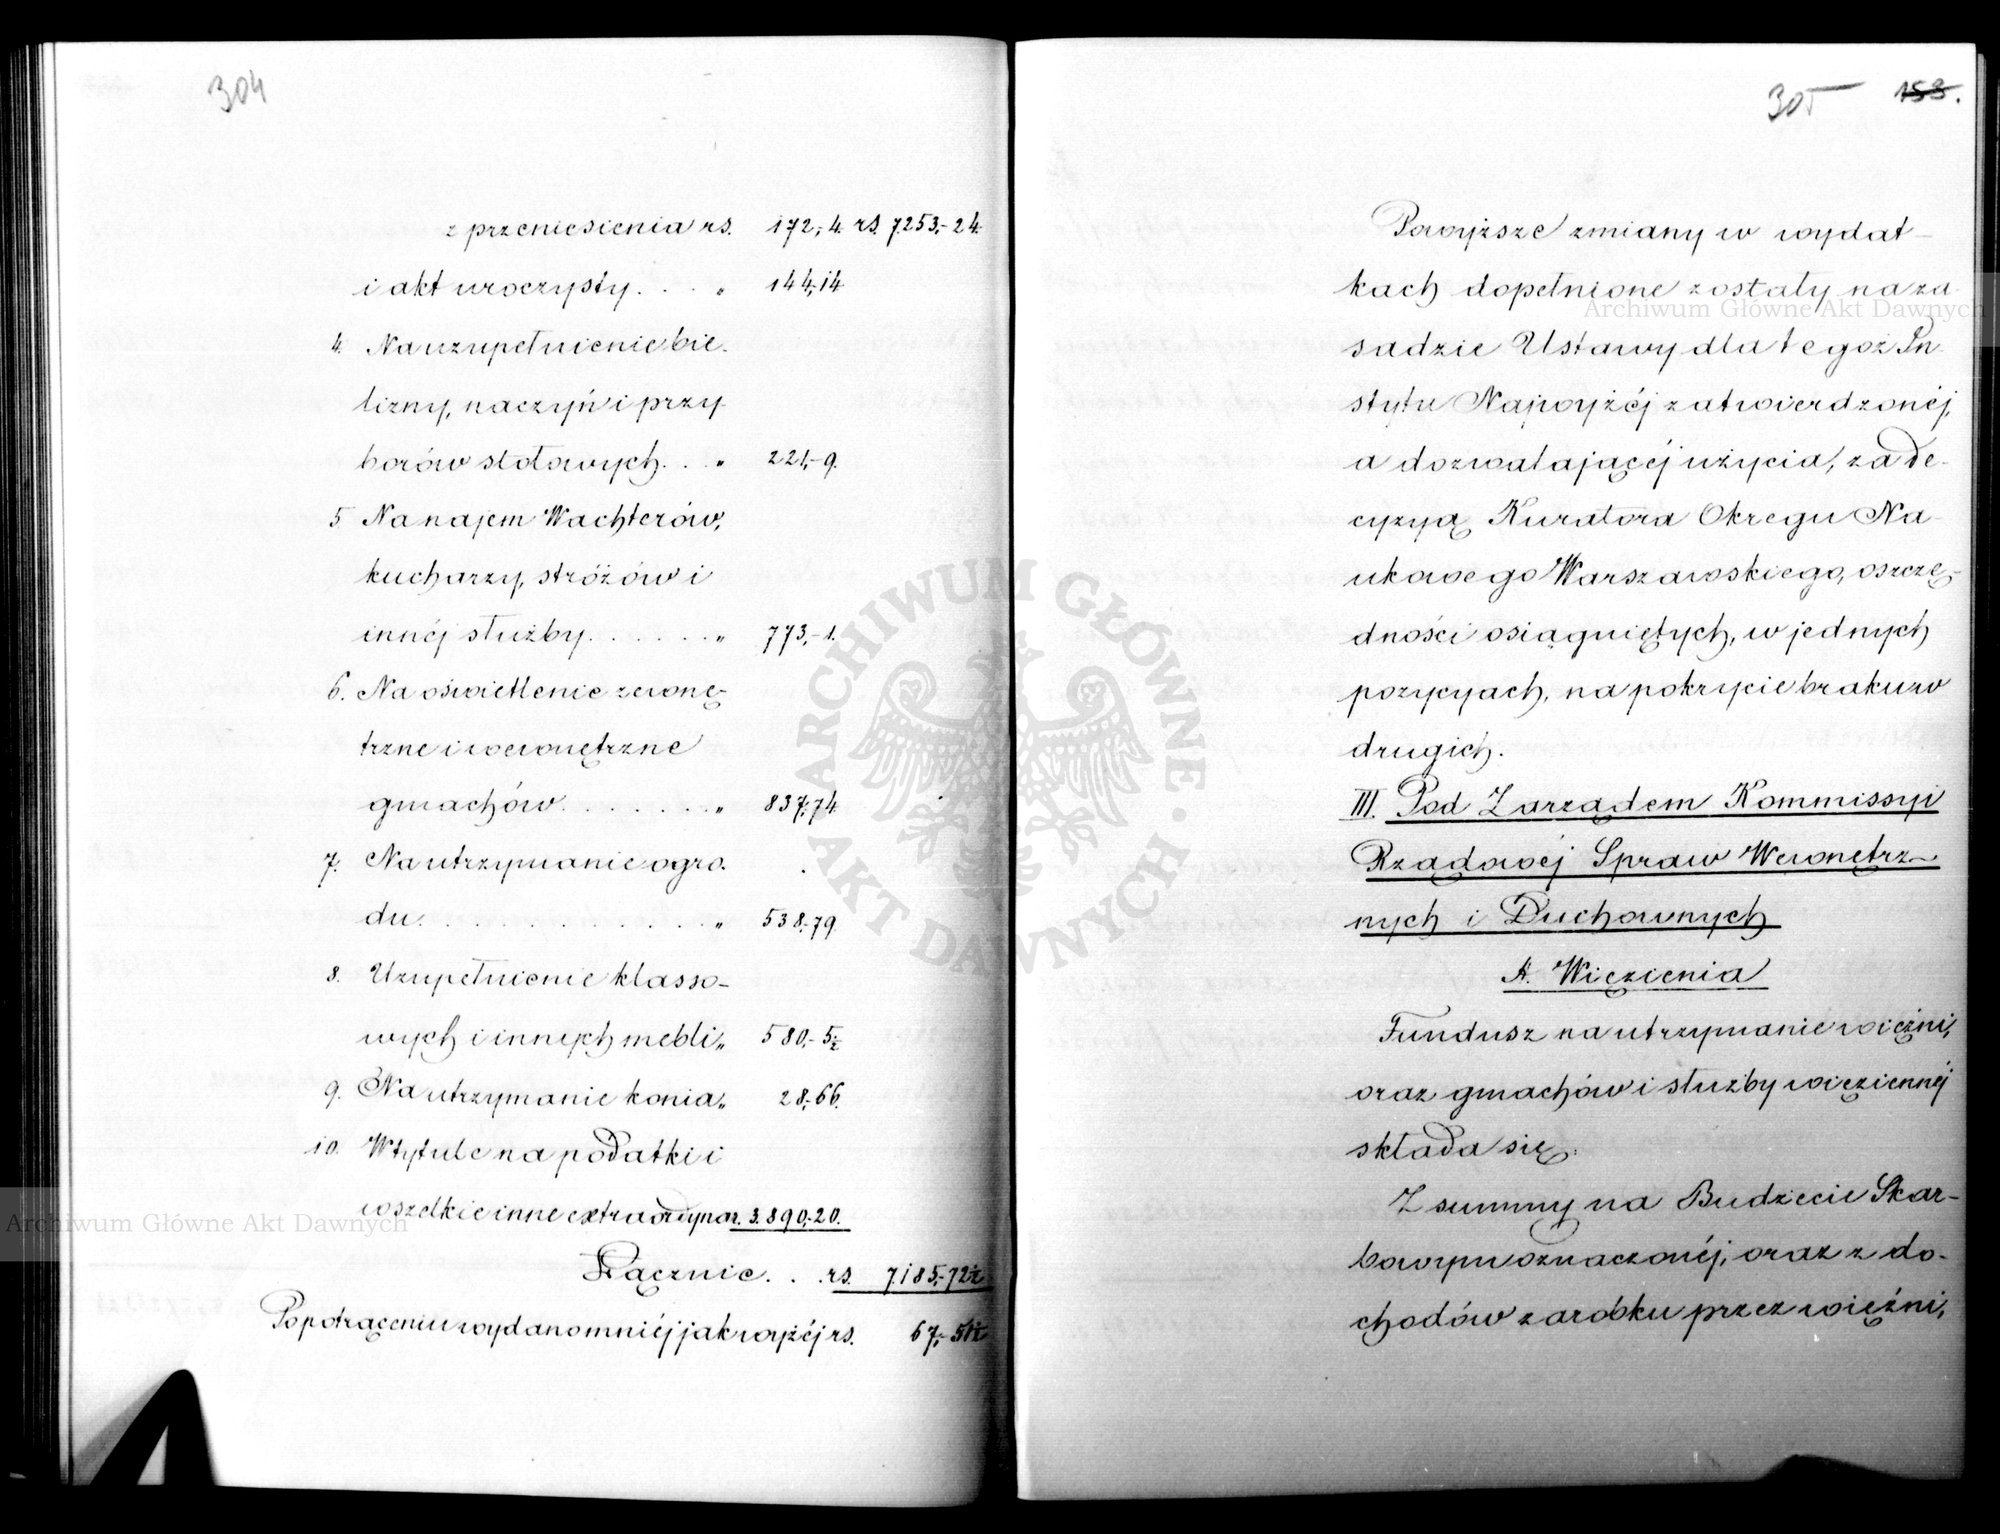 304
z przeniesienia rs. 172,-4. rs. 7253,-24.
i akt uroczysty. . . . „ 144,-14
4. Na uzupełnienie bie-
lizny, naczyń i przy-
borów stołowych. . . „ 221,-9.
5 Na najem Wachterów,
kucharzy, stróżów i
innéj służby. . . . . . . „ 773,-1.
6. Na oświetlenie zewnę-
trzne i wewnętrzne
gmachów. . . . . . . . „ 837,-74.
7. Na utrzymanie ogro-
du. . . . . . . . . . . . „ 538,-79.
8. Uzupełnienie klasso-
wych i innych mebli „ 580,-5½
9. Na utrzymanie konia „ 28,-66.
10. W tytule na podatki i
wszelkie inne extraordynar. 3.890,-20.
Łącznie. . . rs. 7.185,-72½
Po potrąceniu wydano mniéj jak wyżéj rs. 67,-51½
305 153.
Powyższe zmiany w wydat-
kach dopełnione zostały na za-
sadzie Ustawy dla tegoż In-
stytu Najwyżéj zatwierdzonéj,
a dozwalającéj użycia, za de-
cyzyą Kuratora Okregu Na-
ukowego Warszawskiego, oszczę-
dności osiągniętych, w jednych
pozycyach, na pokrycie braku w
drugich.
III. Pod Zarządem Kommissyi
Rządowéj Spraw Wewnętrz-
nych i Duchownych
A. Więzienia
Fundusz na utrzymanie więźni,
oraz gmachów i służby więziennéj
składa się:
Z summy na Budżecie Skar-
bowym oznaczonéj, oraz z do-
chodów zarobku przez więźni,
Archiwum Główne Akt Dawnych
Archiwum Główne Akt Dawnych
ARCHIWUM GŁÓWNE AKT DAWNYCH